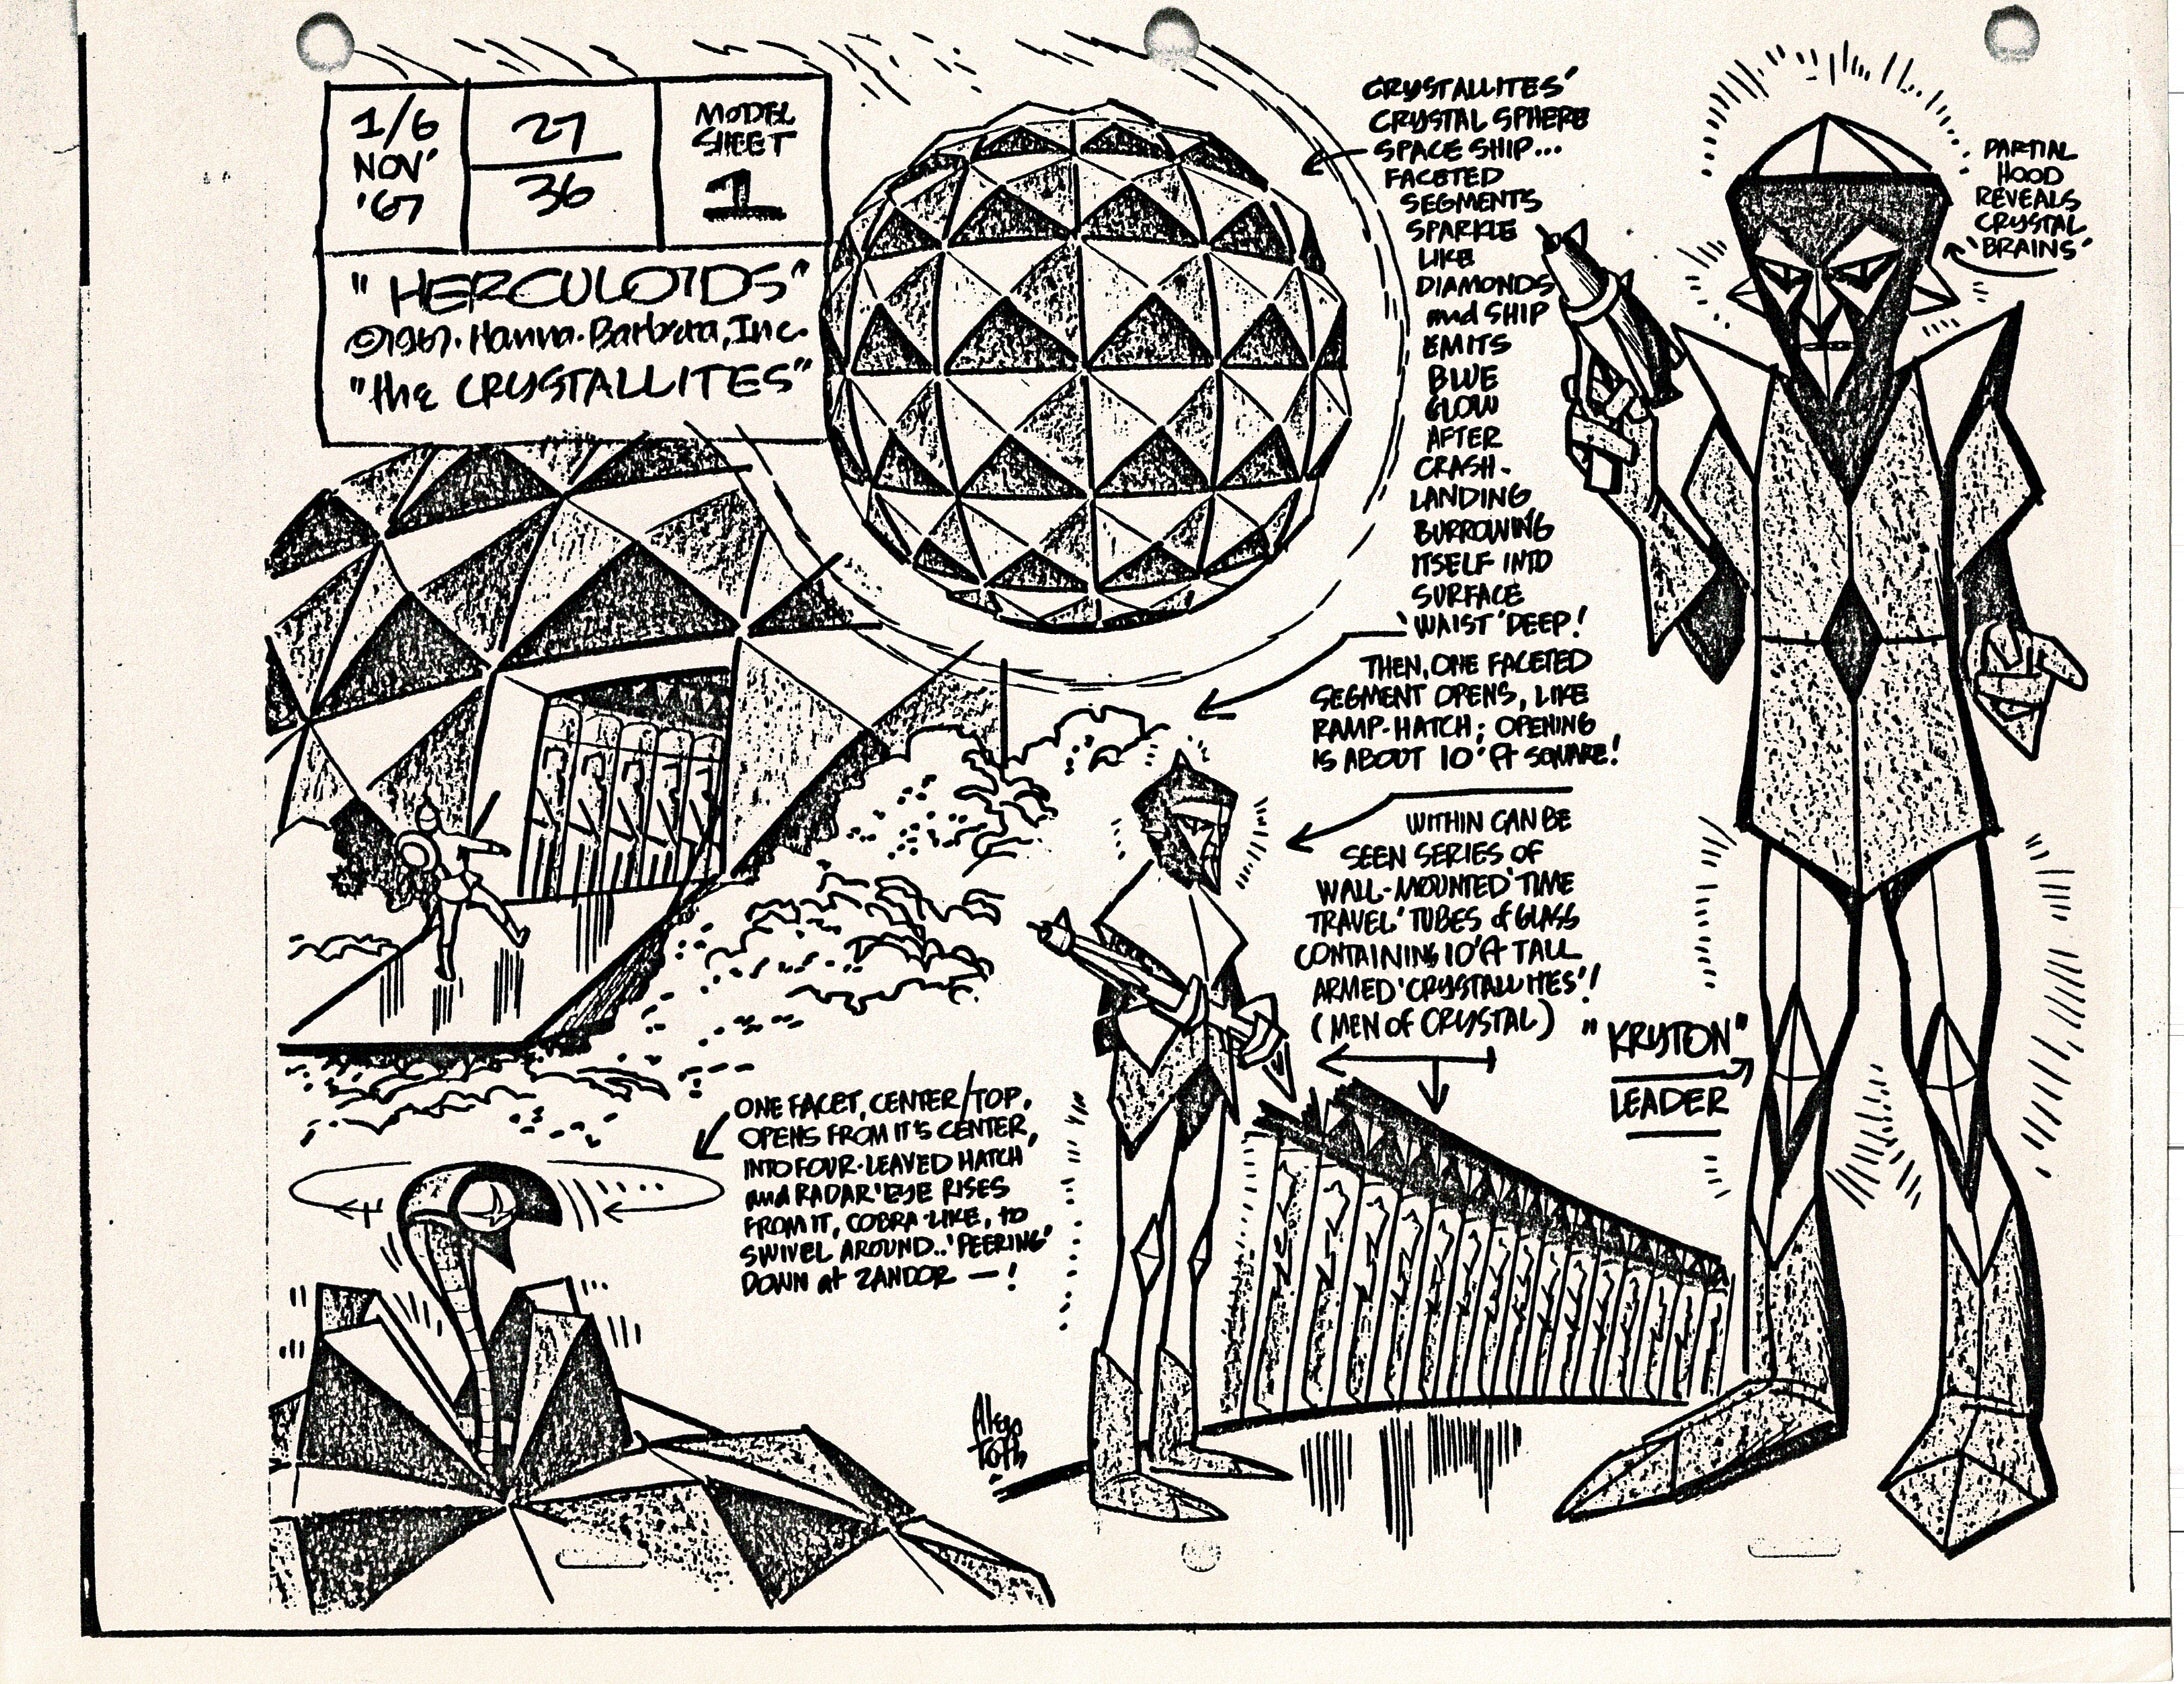 1/6
NOV'
'67
27
36
MODEL
SHEET
1
"HERCULOIDS"
©1967. Hanna-Barbera, Inc.
"the CRYSTALLITES"
CRYSTALLITES'
CRYSTAL SPHERE
SPACE SHIP...
FACETED
SEGMENTS
SPARKLE
LIKE
DIAMONDS
and SHIP
EMITS
BLUE
GLOW
AFTER
CRASH-
LANDING
BURROWING
ITSELF INTO
SURFACE
'WAIST' DEEP!
THEN, ONE FACETED
SEGMENT OPENS, LIKE
RAMP-HATCH; OPENING
IS ABOUT 10' ft SQUARE!
WITHIN CAN BE
SEEN SERIES OF
WALL-MOUNTED 'TIME
TRAVEL' TUBES of GLASS
CONTAINING 10' ft TALL
ARMED 'CRYSTALLITES'!
(MEN OF CRYSTAL)
PARTIAL
HOOD
REVEALS
CRYSTAL
'BRAINS'
"KRYTON"
LEADER
ONE FACET, CENTER/TOP,
OPENS FROM IT'S CENTER,
INTO FOUR-LEAVED HATCH
and RADAR 'EYE RISES
FROM IT, COBRA-LIKE, to
SWIVEL AROUND.. 'PEERING'
DOWN at ZANDOR —!
Alex
Toth